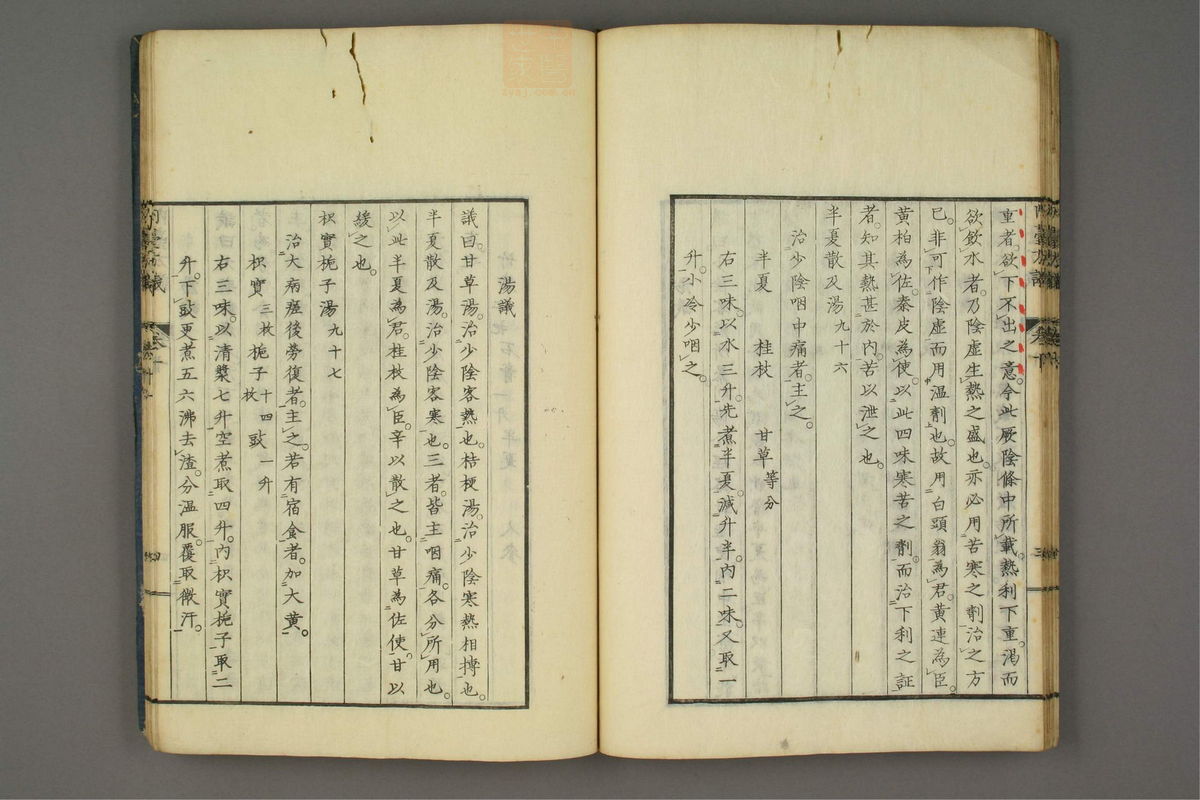 重者。欲下不出之意。今此厥陰條中所載。熱利下重渴而
欲飲水者。乃陰虛生熱之盛也。亦必用苦寒之劑治之方
已。非可作陰虛而用溫劑也。故用白頭翁為君。黃連為臣。
黃柏為佐。秦皮為使。以此四味寒苦之劑。而治下利之証
者。知其熱甚於內。苦以泄之也。
半夏散及湯九十六
治少陰咽中痛者。主之。
半夏　桂枝　甘草等分
右三味。以水三升。先煮半夏。減升半。內二味。又取一
升。小冷少咽之。
湯議
議曰。甘草湯。治少陰客熱也。桔梗湯。治少陰寒熱相摶也。
半夏散及湯。治少陰客寒也。三者。皆主咽痛。各分所用也。
以此半夏為君。桂枝為臣。辛以散之也。甘草為佐使。甘以
緩之也。
枳實梔子湯九十七
治大病瘥後勞復者。主之。若有宿食者。加大黃。
枳實三枚　梔子十四枚　豉一升
右三味。以清漿七升空煮取四升。內枳實梔子取二
升。下豉更煮五六沸去渣。分溫服。覆取微汗。